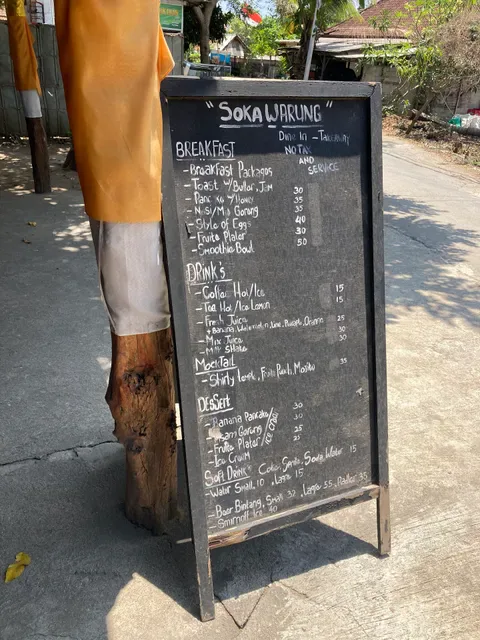 "SOKA WARUNG"
Dine In - Takeaway
NO TAX
AND
SERVICE
BREAKFAST
- Breakfast Packages
- Toast w/Butter, Jam 30
- Pancake w/Honey 35
- Nasi/Mie Goreng 35
- Style of Eggs 40
- Fruite Plater 30
- Smoothie Bowl 50
DRINK'S
- Coffee Hot/Ice 15
- Tea Hot/Ice Lemon 15
- Fresh Juice 25
+ Banana, Watermelon, Lime, Orange
- Mix Juice 30
- Milk Shake 30
MOCKTAIL 35
- Shirly temple, Fruite Punch, Mojito
DESSERT
- Banana Pancake 30
- Goreng 30
- Fruite Plater 25
- Ice Cream 25
Soft Drink's Coke, Sprite, Soda Water 15
- Water Small, 10, Large 15
- Beer Bintang, Small 32, Large 55, Radler 35
- Smirnoff Ice 40